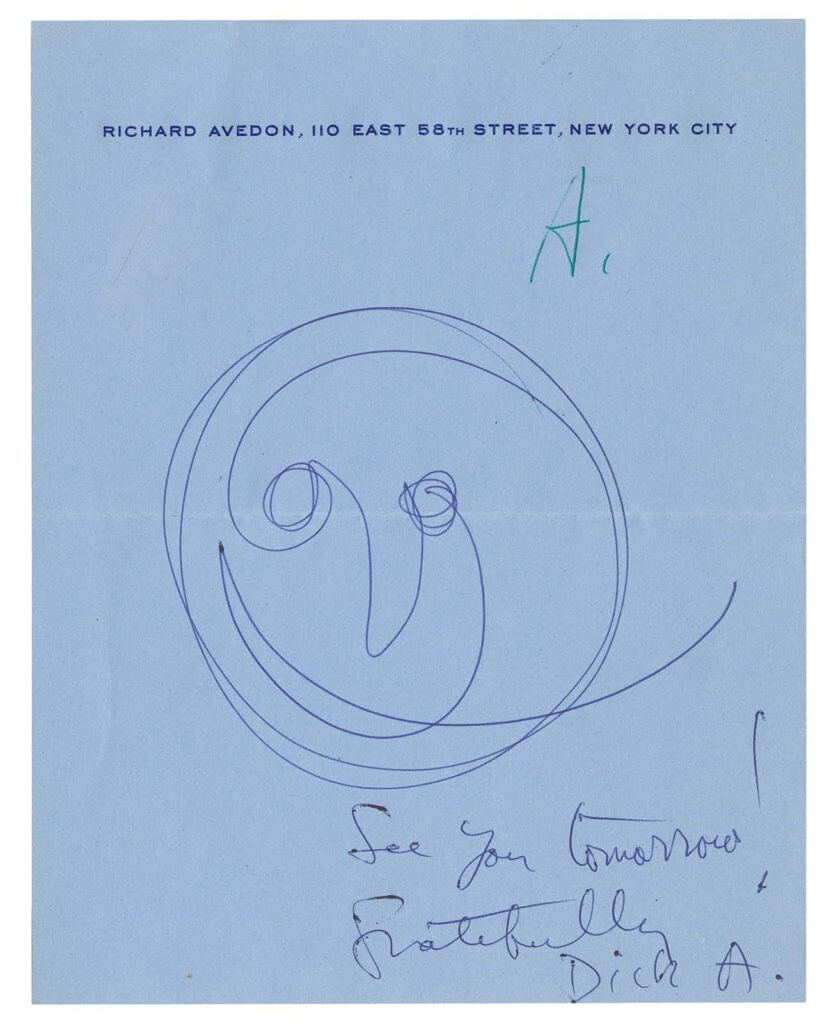 RICHARD AVEDON, 110 EAST 58TH STREET, NEW YORK CITY
A.
See you tomorrow!
Gratefully
Dick A.